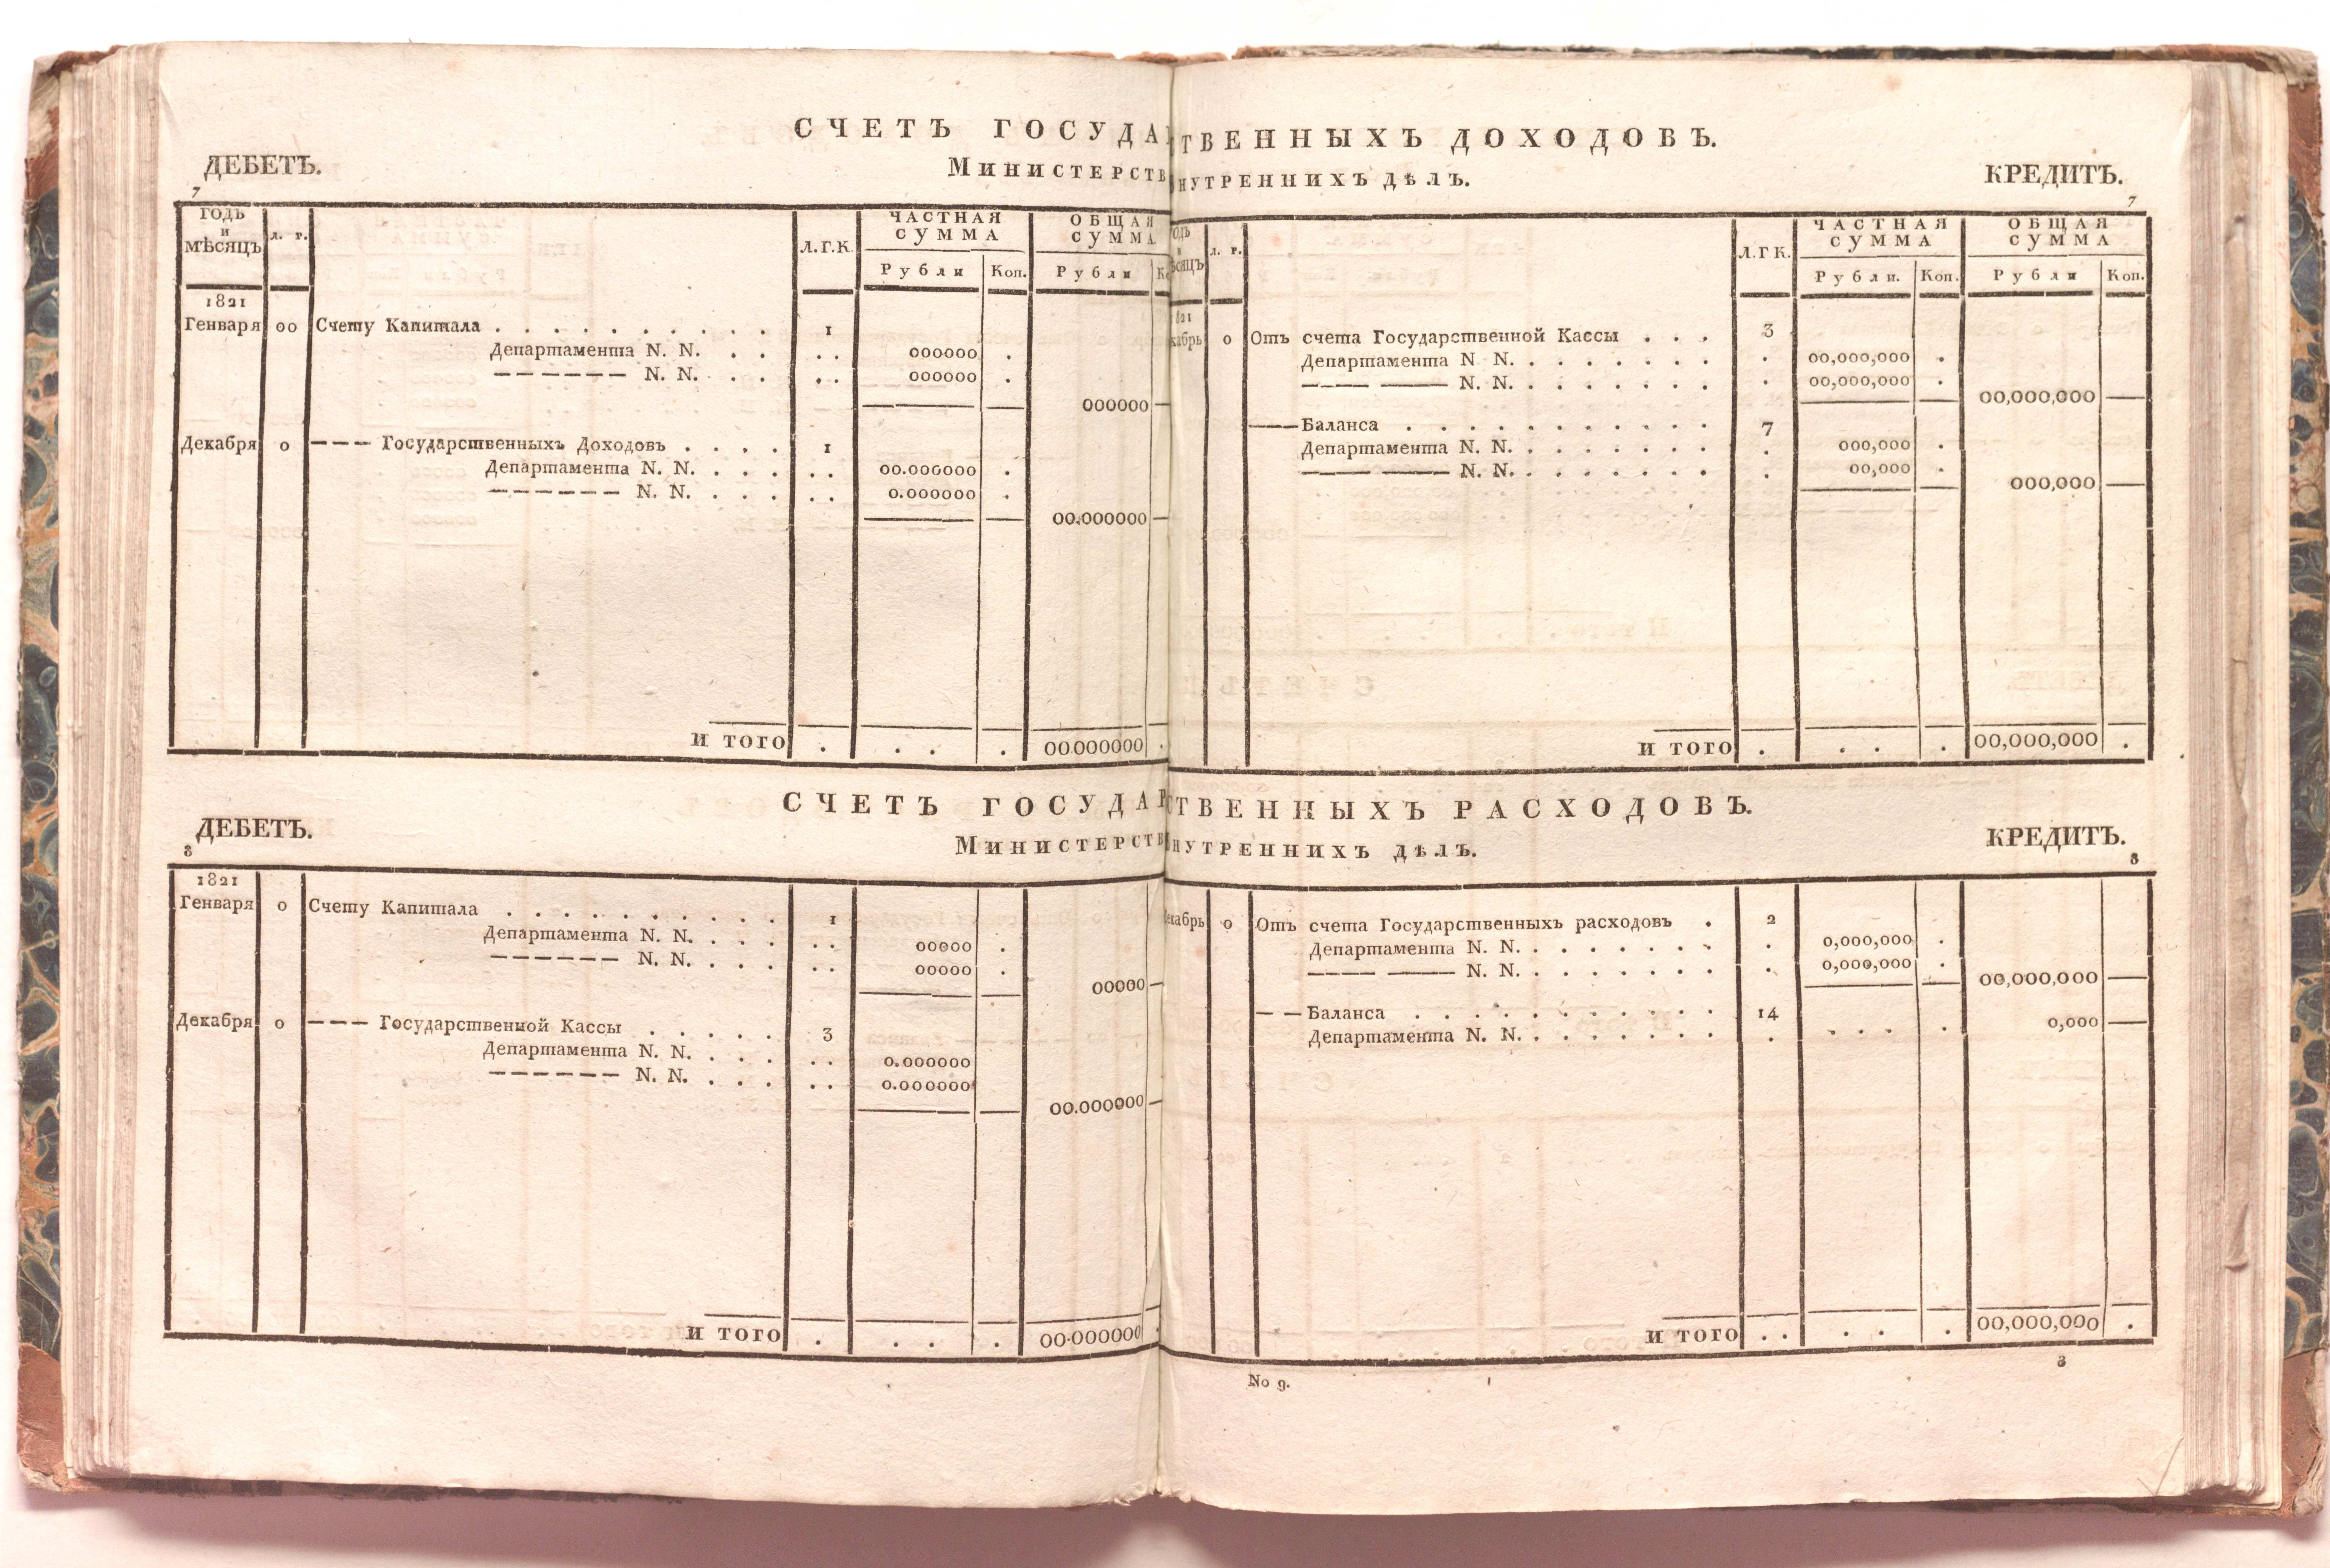 СЧЕТЪ ГОСУДАРСТВЕННЫХЪ ДОХОДОВЪ.
ДЕБЕТЪ.
МИНИСТЕРСТВ ВНУТРЕННИХЪ ДѢЛЪ.
КРЕДИТЪ.
7
7
ГОДЪ И МѢСЯЦЪ л. г. Л.Г.К. ЧАСТНАЯ СУММА ОБЩАЯ СУММА
Рубли Коп. Рубли К.
1821
Генваря 00 Счету Капитала . . . . . . . . . . 1
Департамента N. N. . . . . 000000 .
— — — — — — N. N. . . . . 000000 .
000000 —
Декабря 0 — — — Государственныхъ Доходовъ . . . . 1
Департамента N. N. . . . . . 00.000000 .
— — — — — — N. N. . . . . . 0.000000 .
00.000000 —
И ТОГО . . . . 00.000000 .
ОДЪ И ѢСЯЦЪ л. г. Л.Г К. ЧАСТНАЯ СУММА ОБЩАЯ СУММА
Рубли. Коп. Рубли Коп.
821
кабрь 0 Отъ счета Государственной Кассы . . . 3
Департамента N. N. . . . . . . . . 00,000,000 .
—–—– ——— N. N. . . . . . . . . 00,000,000 .
00,000,000 —
——Баланса . . . . . . . . . . . 7
Департамента N. N. . . . . . . . . 000,000 .
——— ——— N. N. . . . . . . . . 00,000 .
000,000 —
И ТОГО . . . . 00,000,000 .
СЧЕТЪ ГОСУДАРСТВЕННЫХЪ РАСХОДОВЪ.
ДЕБЕТЪ.
МИНИСТЕРСТВ ВНУТРЕННИХЪ ДѢЛЪ.
КРЕДИТЪ.
8
8
1821
Генваря 0 Счету Капитала . . . . . . . . . . 1
Департамента N. N. . . . . . 00000 .
— — — — — — N. N. . . . . . 00000 .
00000 —
Декабря 0 — — — Государственной Кассы . . . . . 3
Департамента N. N. . . . . . 0.000000
— — — — — — N. N. . . . . . 0.000000
00.000000 —
И ТОГО . . . . 00.000000 .
екабрь 0 Отъ счета Государственныхъ расходовъ . 2
Департамента N. N. . . . . . . . . 0,000,000 .
—–—– ——— N. N. . . . . . . . . 0,000,000 .
00,000,000 —
— — Баланса . . . . . . . . . . . 14
Департамента N. N. . . . . . . . . . . . . 0,000 —
И ТОГО . . . . . 00,000,000 .
8
No 9.